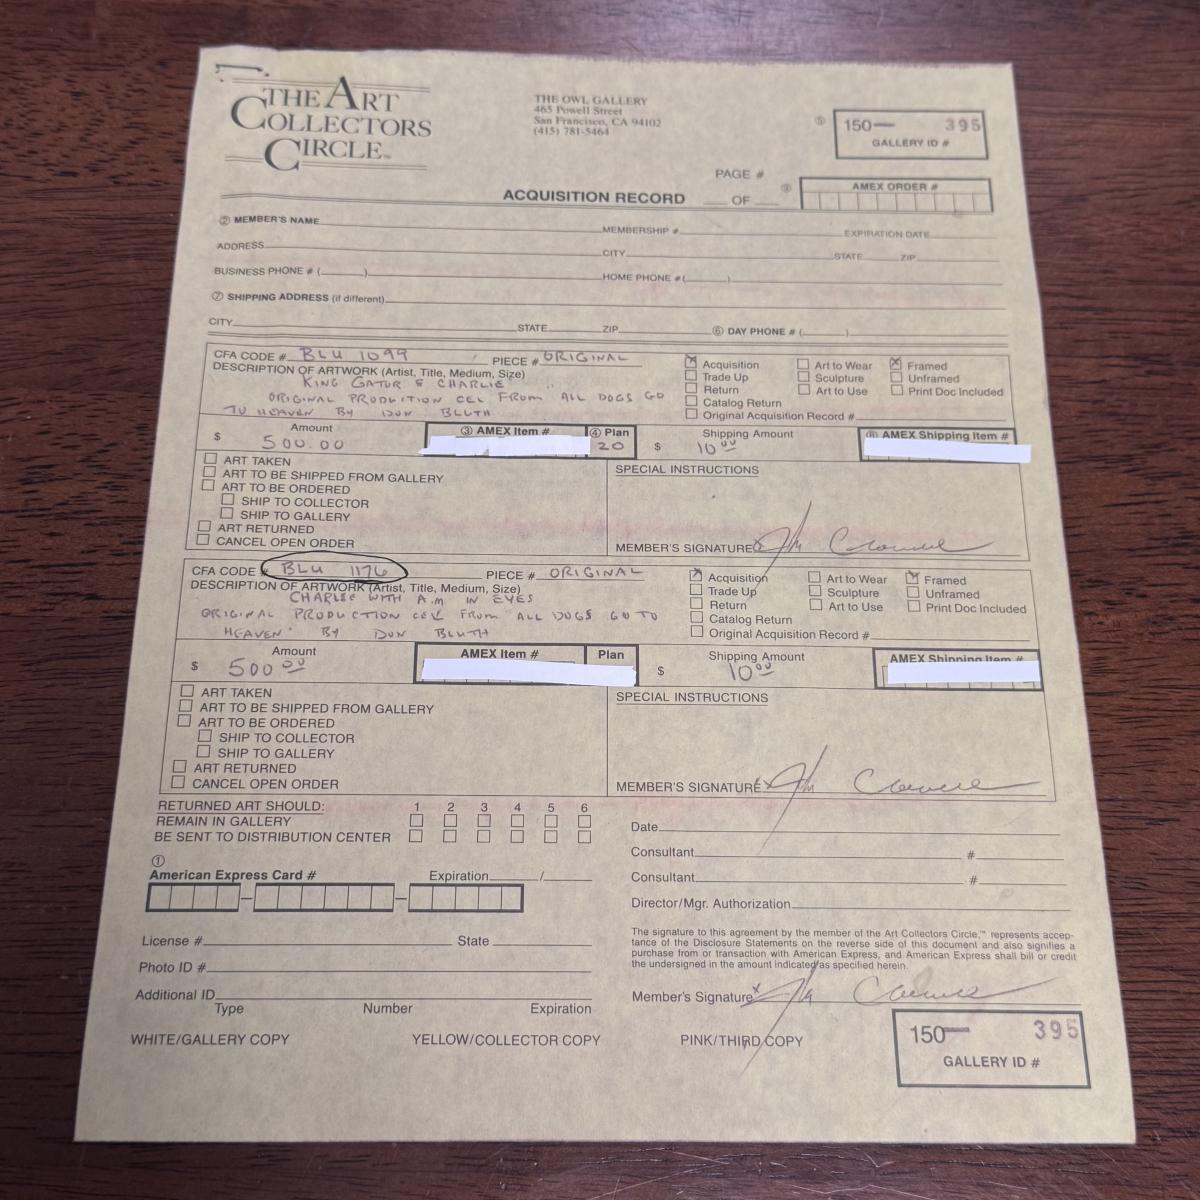 THE ART
COLLECTORS
CIRCLE™
THE OWL GALLERY
465 Powell Street
San Francisco, CA 94102
(415) 781-5464
⑤ 150— 395
GALLERY ID #
PAGE #
ACQUISITION RECORD ___ OF ___
AMEX ORDER #
② MEMBER'S NAME
MEMBERSHIP # EXPIRATION DATE
ADDRESS CITY STATE ZIP
BUSINESS PHONE # ( ) HOME PHONE # ( )
⑦ SHIPPING ADDRESS (if different)
CITY STATE ZIP ⑥ DAY PHONE # ( )
CFA CODE # BLU 1099 PIECE # ORIGINAL
DESCRIPTION OF ARTWORK (Artist, Title, Medium, Size)
KING GATOR & CHARLIE
ORIGINAL PRODUCTION CEL FROM ALL DOGS GO
TO HEAVEN BY DON BLUTH
Acquisition Art to Wear Framed
Trade Up Sculpture Unframed
Return Art to Use Print Doc Included
Catalog Return
Original Acquisition Record #
Amount ③ AMEX Item # ④ Plan Shipping Amount AMEX Shipping Item #
$ 500.00 20 $ 10 00
ART TAKEN
ART TO BE SHIPPED FROM GALLERY
ART TO BE ORDERED
SHIP TO COLLECTOR
SHIP TO GALLERY
ART RETURNED
CANCEL OPEN ORDER
SPECIAL INSTRUCTIONS
MEMBER'S SIGNATURE
CFA CODE # BLU 1176 PIECE # ORIGINAL
DESCRIPTION OF ARTWORK (Artist, Title, Medium, Size)
CHARLIE WITH A.M IN EYES
ORIGINAL PRODUCTION CEL FROM "ALL DOGS GO TO
HEAVEN" BY DON BLUTH
Acquisition Art to Wear Framed
Trade Up Sculpture Unframed
Return Art to Use Print Doc Included
Catalog Return
Original Acquisition Record #
Amount AMEX Item # Plan Shipping Amount AMEX Shipping Item #
$ 500 00 $ 10 00
ART TAKEN
ART TO BE SHIPPED FROM GALLERY
ART TO BE ORDERED
SHIP TO COLLECTOR
SHIP TO GALLERY
ART RETURNED
CANCEL OPEN ORDER
SPECIAL INSTRUCTIONS
MEMBER'S SIGNATURE x
RETURNED ART SHOULD: 1 2 3 4 5 6
REMAIN IN GALLERY
BE SENT TO DISTRIBUTION CENTER
①
American Express Card # Expiration / 
License # State
Photo ID #
Additional ID
Type Number Expiration
Date
Consultant #
Consultant #
Director/Mgr. Authorization
The signature to this agreement by the member of the Art Collectors Circle,™ represents accep-
tance of the Disclosure Statements on the reverse side of this document and also signifies a
purchase from or transaction with American Express, and American Express shall bill or credit
the undersigned in the amount indicated as specified herein.
Member's Signature x
WHITE/GALLERY COPY YELLOW/COLLECTOR COPY PINK/THIRD COPY
150— 395
GALLERY ID #